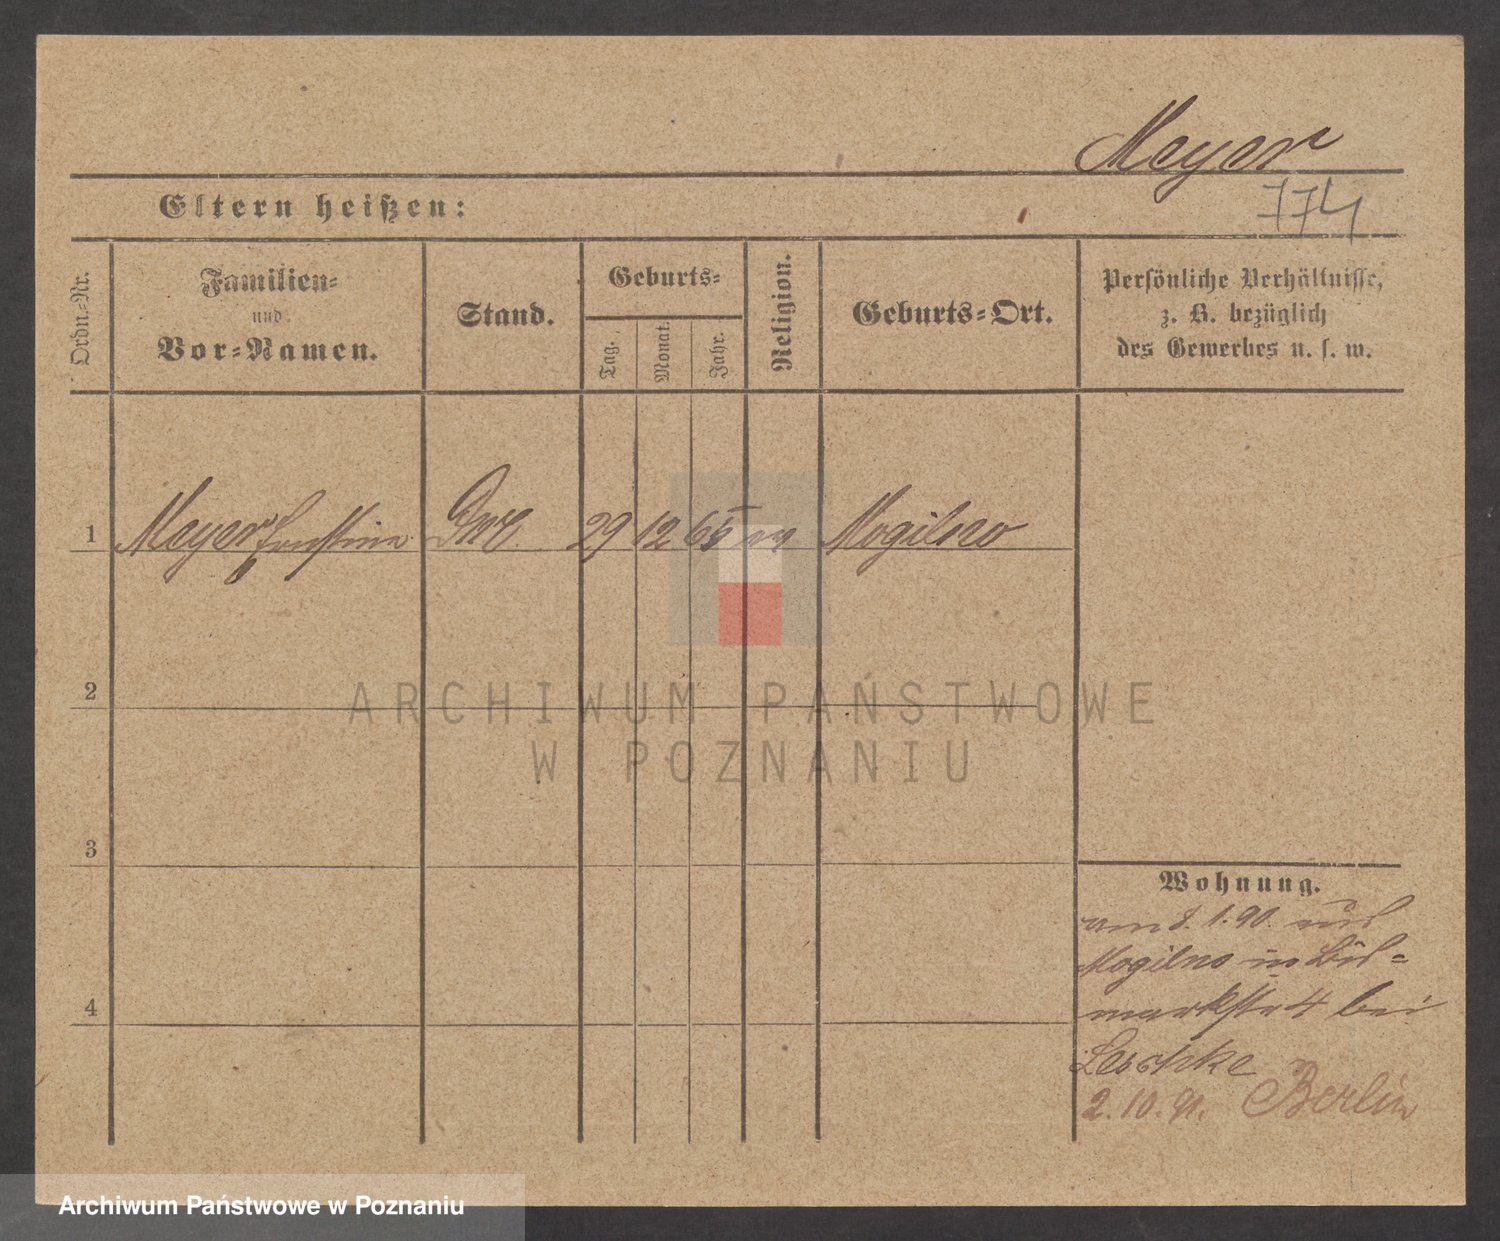 Meyer
774
Eltern heißen:
Ordn.-Nr.
Familien-
und
Vor-Namen.
Stand.
Geburts-
Tag.
Monat.
Jahr.
Religion.
Geburts-Ort.
Persönliche Verhältnisse,
z. B. bezüglich
des Gewerbes u. s. w.
1 Meyer Ernstine 29 12 65 m Mogilno
2
3
4
Wohnung.
am 8.1.90. aus
Mogilno in Bis-
markstr 4 bei
Leschke
2.10.91. Berlin
ARCHIWUM PAŃSTWOWE
W POZNANIU
Archiwum Państwowe w Poznaniu